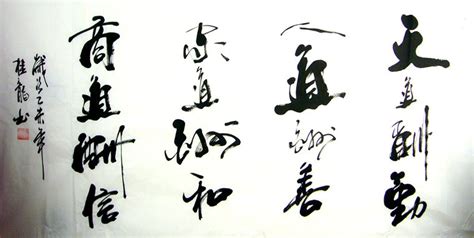 天道酬勤
人道酬善
家道酬和
商道酬信
歲乙未年
桂龍书